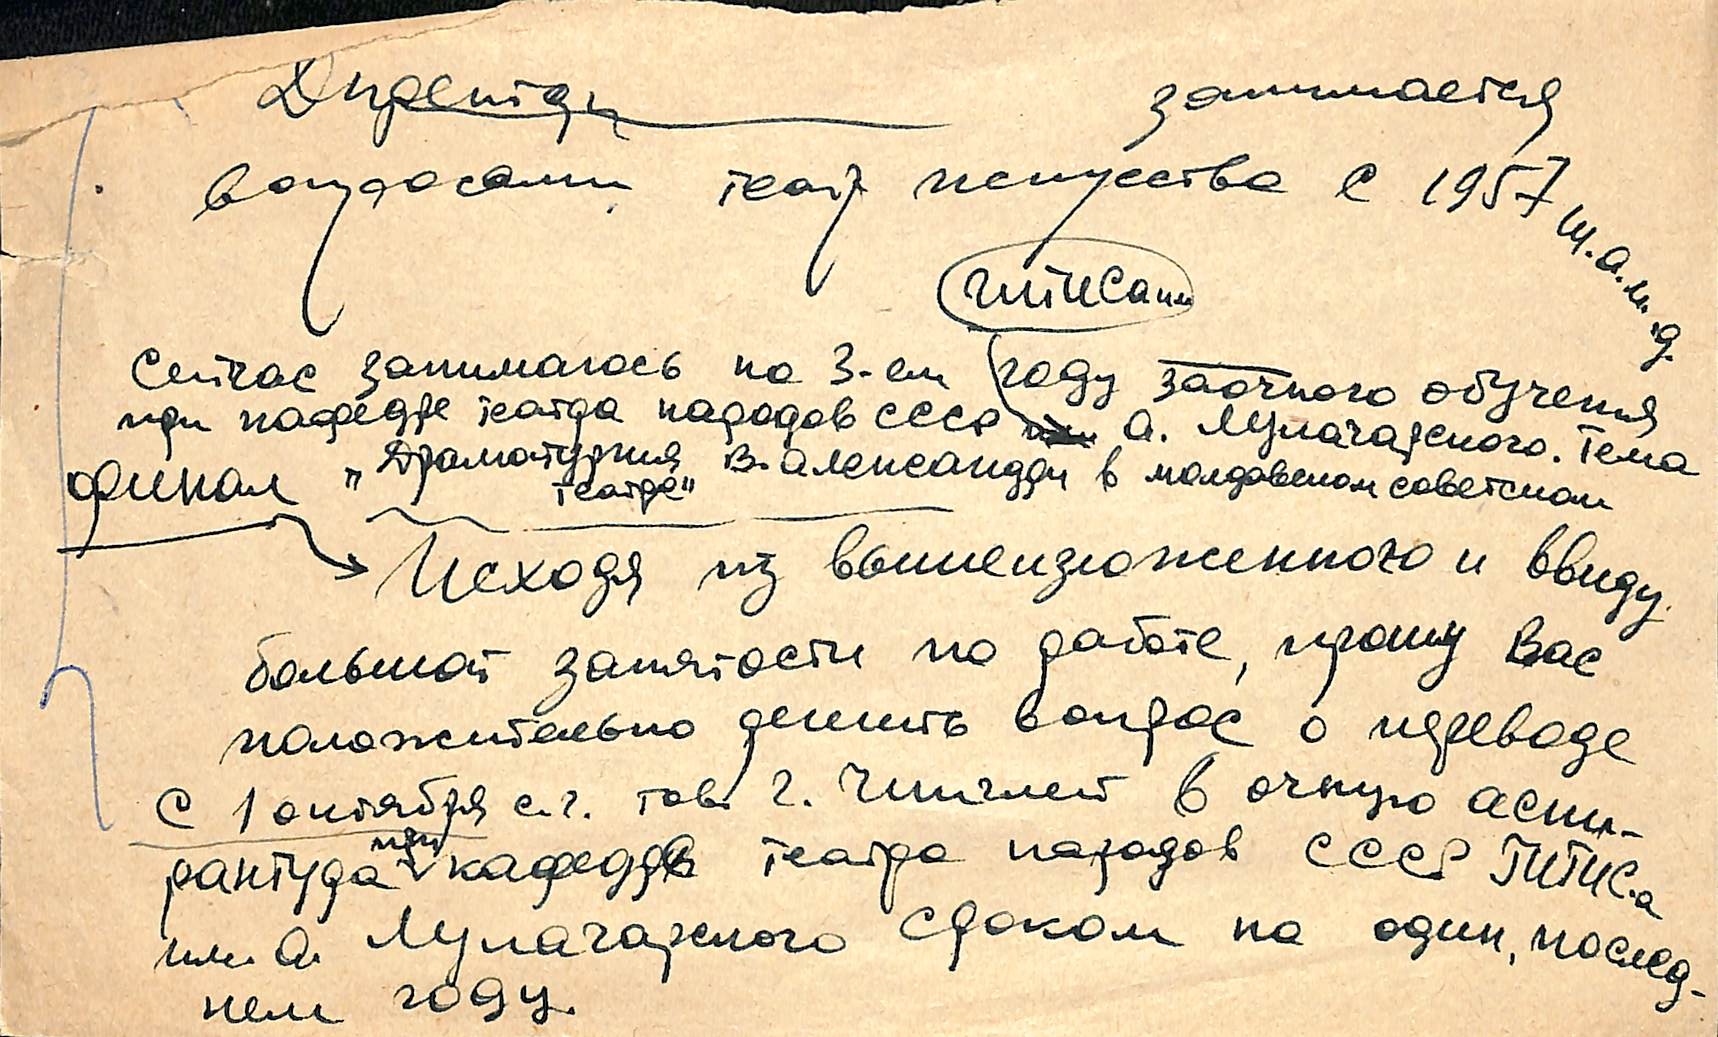 Директору занимается
вопросами театр искусства с 1957
и.а.м.д.
ГИТИСа им
Сейчас занимаюсь на 3-ем году заочного обучения
при кафедре театра народов СССР А. Луначарского. Тема
финал „Драматургия В. Александри в молдавском советском
театре"
Исходя из вышеизложенного и ввиду
большой занятости по работе, прошу Вас
положительно решить вопрос о переводе
с 1 октября с.г. тов. Г. Чиглей в очную аспи-
рантура при кафедра театра народов СССР ГИТИСа
им А. Луначарского сроком на один, послед-
нем году.